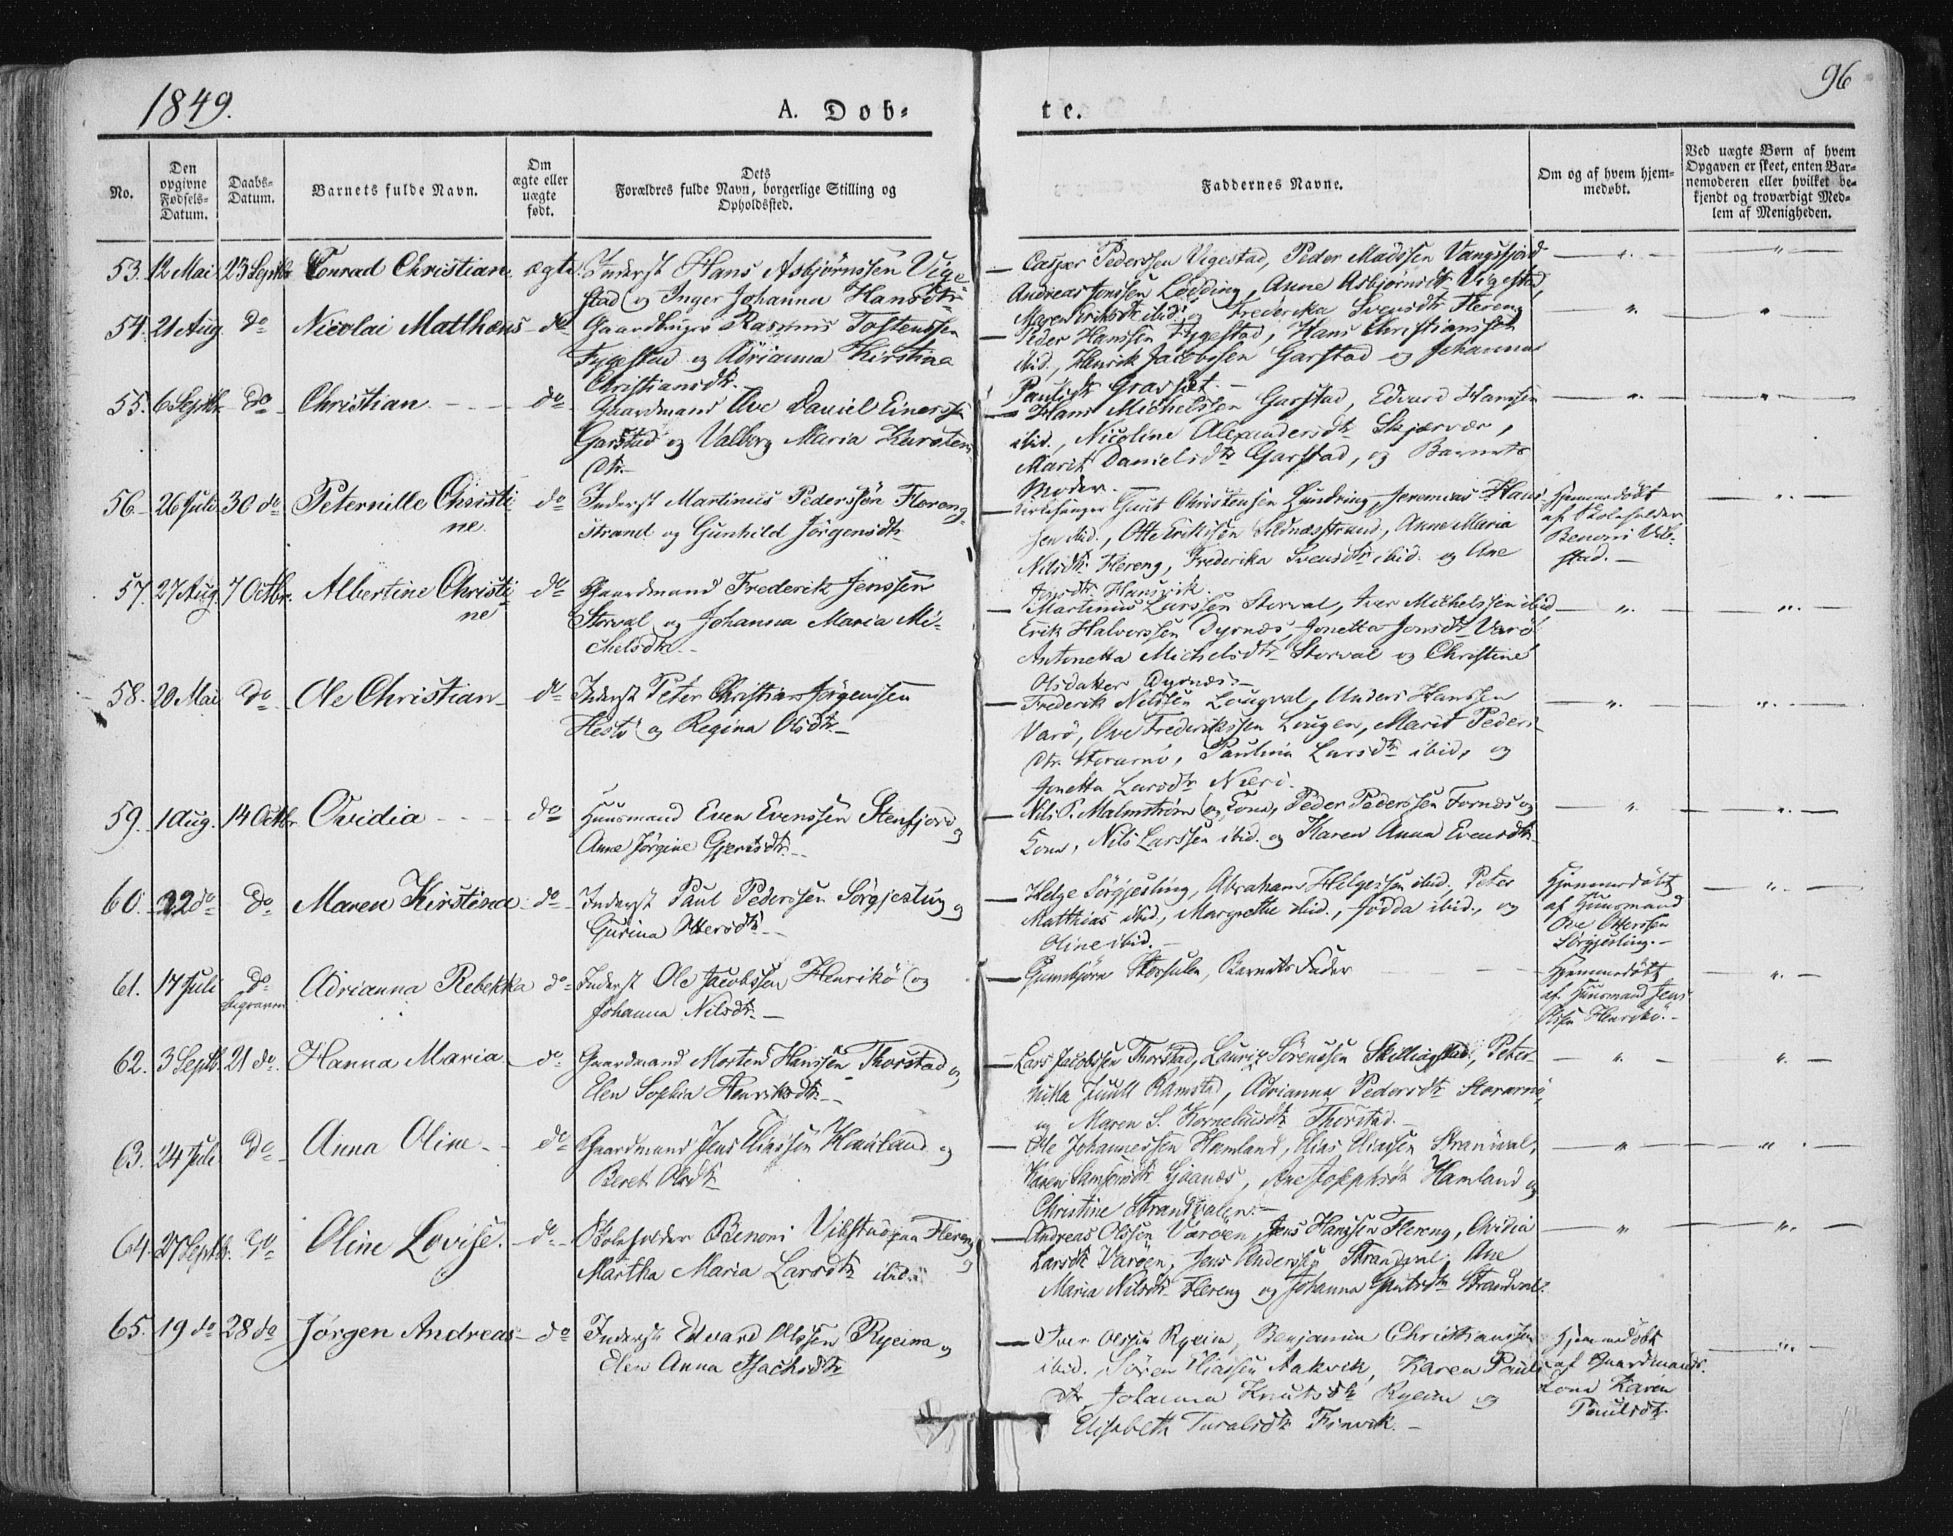 1849.
A. Dob-
te.
96
No.
Den opgivne Fødsels-Datum.
Daabs-Datum.
Barnets fulde Navn.
Om ægte eller uægte født.
Dets Forældres fulde Navn, borgerlige Stilling og Opholdssted.
Faddernes Navne.
Om og af hvem hjem-medøbt.
Ved uægte Børn af hvem Opgaven er skeet, enten Bar-nemoderen eller hvilket be-kjendt og troværdigt Med-lem af Menigheden.
53. 12 Mai 23 Septbr Conrad Christian. ægte. Inderst Hans Asbjørnssen Vige-
stad og Inger Johanna Hansdtr
— Casper Pederssen Vigestad, Peder Madssen Vangsfjord
Andreas Jonssen Lødding, Anne Asbjørnsdtr Vigestad,
Maren Eriksdtr ibid. og Frederika Svensdtr Flereng
54. 21 Aug. do Nicolai Matthæus do Gaardbruger Rasmus Tostenssen
Fygestad og Adrianna Kirstina
Christiansdtr.
— Peder Hanssen Fygestad, Hans Christianssen
ibid., Henrik Jacobssen Garstad og Johanna
Paulsdtr Gravset. —
55. 6 Septbr. do Christian do Gaardmand Ove Daniel Einerssen
Garstad og Valborg Maria Karsten
Dtr. —
— Hans Michelssen Garstad, Edvard Hanssen
ibid., Nicoline Alexandersdtr Skjærvær,
Marit Danielsdtr Garstad, og Barnets
Moder. —
56. 26 Juli 30 do Peternille Christi-
ne. do Inderst Martinus Pederssøn Flereng-
strand og Gunhild Jørgensdtr
— Kirkesanger Gunt Christensen Lundring, Jeremias Hans-
sen ibid., Otte Erikssøn Sildnæsstrand, Anne Maria
Nilsdtr Flereng, Frederika Svensdtr ibid. og Ane
Jensdtr Hansvik.
Hjemmedøbt
af Skoleholder
Benoni Vib-
stad. —
57. 27 Aug. 7 Octbr. Albertine Christi-
ne do Gaardmand Frederik Jenssen
Storval og Johanna Maria Mi-
chelsdtr. —
— Martinus Larssen Storval, Iver Michelssen ibid
Erik Halvorssen Dyrnæs, Jonetta Jonsdtr Varø
Antonetta Michelsdtr Storval og Christine
Olsdatter Dyrnæs. —
58. 20 Mai do Ole Christian do Inderst Peter Christian Jørgenssen
Hestø og Regina Olsdtr. —
— Frederik Nilssen Lougval, Anders Hanssen
Varø, Ove Frederikssen Lougen, Marit Peders-
Dtr. Storarnø, Paulina Larsdtr ibid, og
Jonetta Larsdtr Nærø.
59. 1 Aug. 14 Octbr Ovidia do Huusmand Even Evenssen Stenfjord og
Anne Jørgine Gjertsdtr. —
— Nils P. Malmstrøm og Kona, Peder Pederssen Fornæs og
Kona, Nils Larssen ibid. og Karen Anna Evensdtr.
60. 22 do do Maren Kirstina do Inderst Paul Pederssen Sørgjesling og
Gurina Ottersdtr. —
— Helge Sørgjesling, Abraham Helgessen ibid. Peter
Matthias ibid., Margrethe ibid., Jødda ibid., og
Oline ibid. —
Hjemmedøbt
af Huusmand
Ove Otterssen
Sørgjesling. —
61. 17 Juli do Adrianna Rebekka do Inderst Ole Jacobssen Henrikø og
Johanna Nilsdtr. —
— Gunnbjørn Storsulen, Barnets Fader
Hjemmedøbt
af Huusmand Jens
Olssen Henrikø. —
62. 3 Septb. 21 do. Hanna Maria do Gaardmand Morten Hanssen Thorstad og
Elen Sophia Henriksdtr. —
— Lars Jacobssen Thorstad, Lauriz Sørenssen Skillingstad, Peter-
nilla Juull Ramstad, Adrianna Pedersdtr Storarnø,
og Maren S. Korneliusdtr Thorstad. —
63. 24 Juli do Anna Oline do Gaardmand Jens Eliassøn Hamland og
Beret Olsdtr
— Ole Johannessen Hamland, Elias Eliassen Strandval,
Karen Samsonsdtr Sjaanæs, Ane Josephsdtr Hamland og
Christine Strandvalen. —
64. 27 Septb. do Oline Lovise. do Skoleholder Benoni Vibstad paa Flereng og
Martha Maria Larsdtr ibid.
— Andreas Olssen Varøen, Jens Hanssen Flereng, Ovidia
Larsdtr Varøen, Jens Anderssen Strandval, Ane
Maria Nilsdtr Flereng og Johanna Guntsdtr Strandval.
65. 19 do 28 do Jørgen Andreas do Inderst Edvard Olssen Ryeim og
Elen Anna Isachsdtr
— Iver Olssen Ryeim, Benjamin Christianssen
ibid., Søren Eliassen Aakvik, Karen Pauls-
Dtr, Johanna Knutsdtr Ryeim og
Elisabeth Turalsdtr Finvik. —
Hjemmedøbt
af Gaardmands-
kona Karen
Paulsdtr.